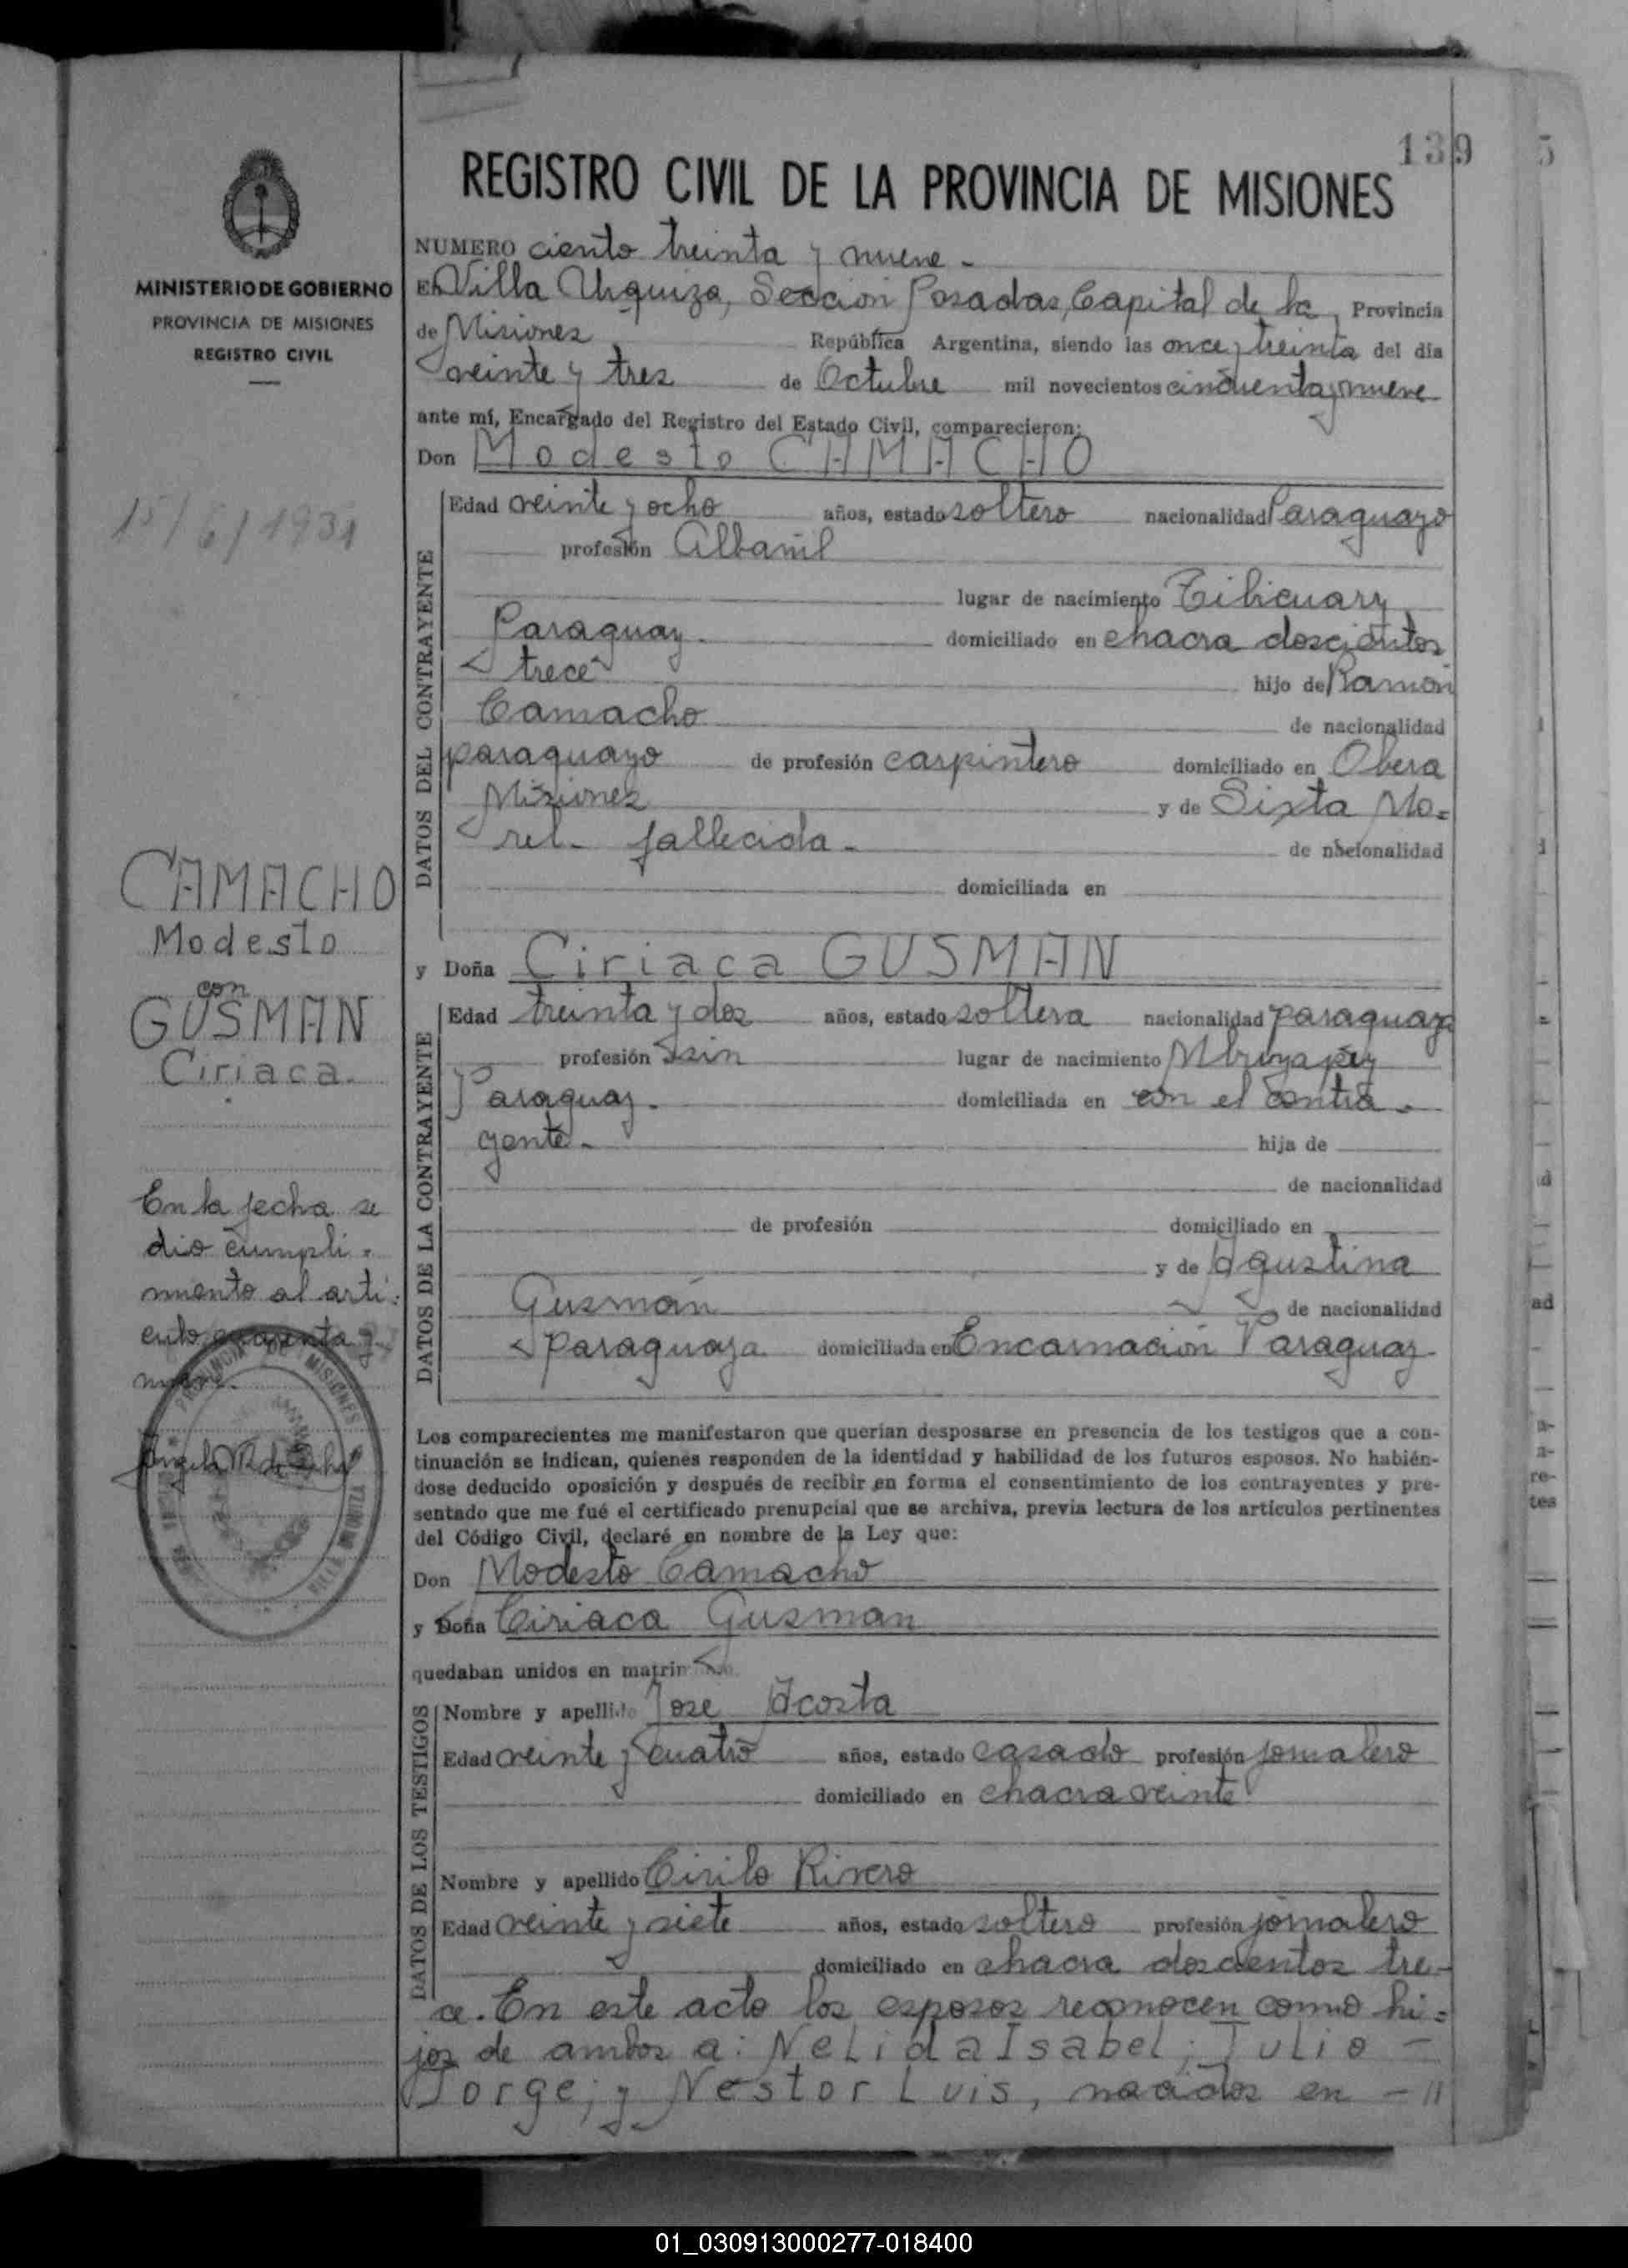 139
5
REGISTRO CIVIL DE LA PROVINCIA DE MISIONES
MINISTERIO DE GOBIERNO
PROVINCIA DE MISIONES
REGISTRO CIVIL
15/6/1931
CAMACHO
Modesto
con
GUSMAN
Ciriaca.
En la fecha se
dio cumpli-
miento al arti-
culo cuarenta y
nueve.
PROVINCIA DE MISIONES
VILLA URQUIZA
NUMERO ciento treinta y nueve -
En Villa Urquiza, Seccion Posadas, Capital de la, Provincia
de Misiones República Argentina, siendo las once y treinta del día
veinte y tres de Octubre mil novecientos cincuenta y nueve
ante mí, Encargado del Registro del Estado Civil, comparecieron:
Don Modesto CAMACHO
DATOS DEL CONTRAYENTE
Edad veinte y ocho años, estado soltero nacionalidad Paraguayo
profesión Albañil
lugar de nacimiento Tibicuary
Paraguay. domiciliado en chacra doscientos
trece hijo de Ramón
Camacho de nacionalidad
paraguayo de profesión carpintero domiciliado en Obera
Misiones y de Sixta Mo-
rel - fallecida - de nacionalidad
domiciliada en
y Doña Ciriaca GUSMAN
DATOS DE LA CONTRAYENTE
Edad treinta y dos años, estado soltera nacionalidad paraguaya
profesión sin lugar de nacimiento Mbuyapey
Paraguay. domiciliada en con el contra-
yente - hija de
de nacionalidad
de profesión domiciliado en
y de Agustina
Gusmán de nacionalidad
paraguaya domiciliada en Encarnación Paraguay
Los comparecientes me manifestaron que querían desposarse en presencia de los testigos que a con-
tinuación se indican, quienes responden de la identidad y habilidad de los futuros esposos. No habién-
dose deducido oposición y después de recibir en forma el consentimiento de los contrayentes y pre-
sentado que me fué el certificado prenupcial que se archiva, previa lectura de los artículos pertinentes
del Código Civil, declaré en nombre de la Ley que:
Don Modesto Camacho
y Doña Ciriaca Gusman
quedaban unidos en matrimonio.
DATOS DE LOS TESTIGOS
Nombre y apellido Jose Acosta
Edad veinte y cuatro años, estado casado profesión jornalero
domiciliado en chacra veinte
Nombre y apellido Cirilo Rivero
Edad veinte y siete años, estado soltero profesión jornalero
domiciliado en chacra doscientos tre-
ce. En este acto los esposos reconocen como hi-
jos de ambos a: Nelida Isabel; Julio -
Jorge; y Nestor Luis, nacidos en - "
ad
re-
tes
01_030913000277-018400